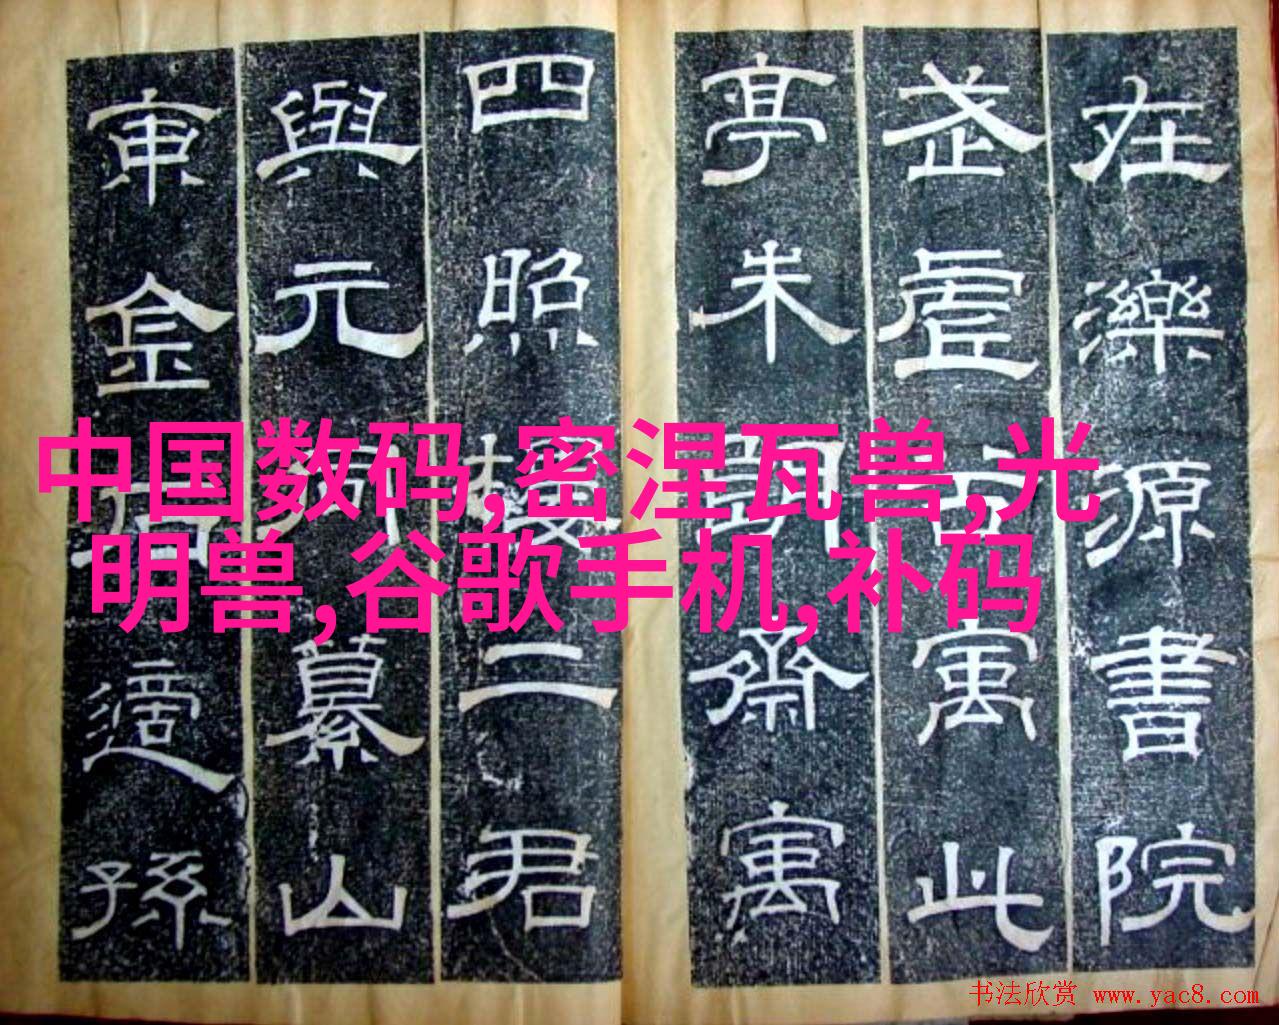 在濼源書院
武虛寓此
亭朱朗齋寓
四照樓二君
與元同纂山
東金石適孫
中国数码,密涅瓦兽,光
明兽,谷歌手机,补码
书法欣赏 www.yac8.com